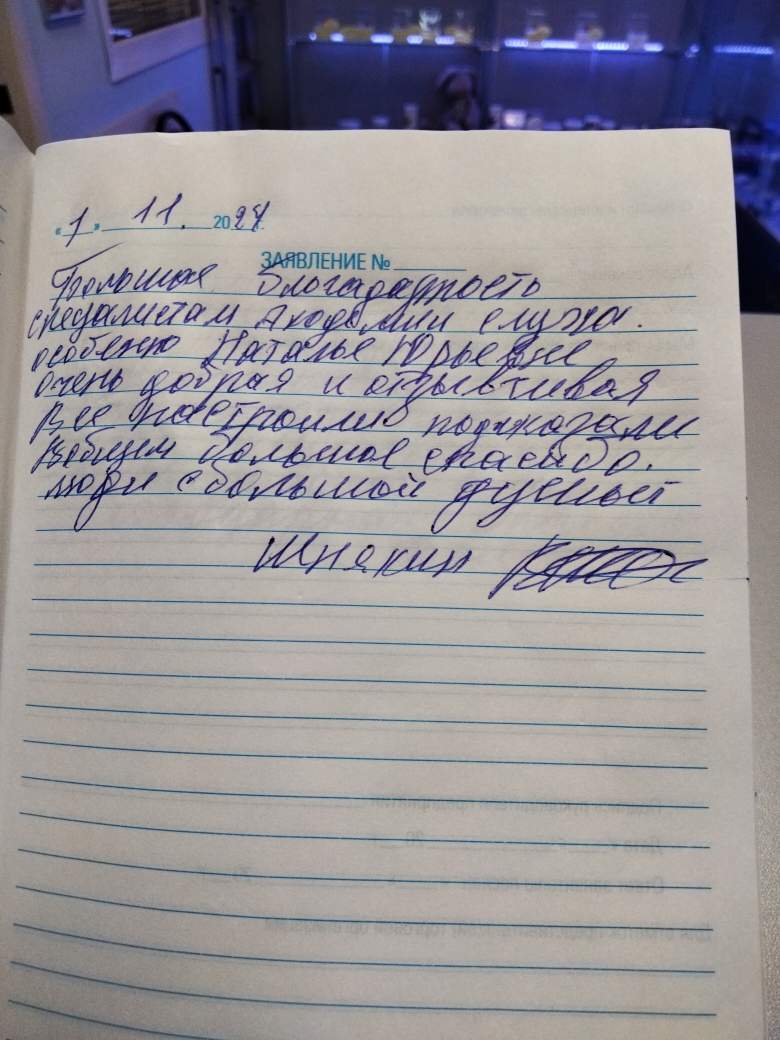 « 1 » 11. 2024
ЗАЯВЛЕНИЕ №
Большая благададность
специалистам Академии слуха.
особенно Наталье Юрьевне
очень добрая и отзывтивая
Все настроили подсказали
Вобщем большое спасибо.
люди с большой душный